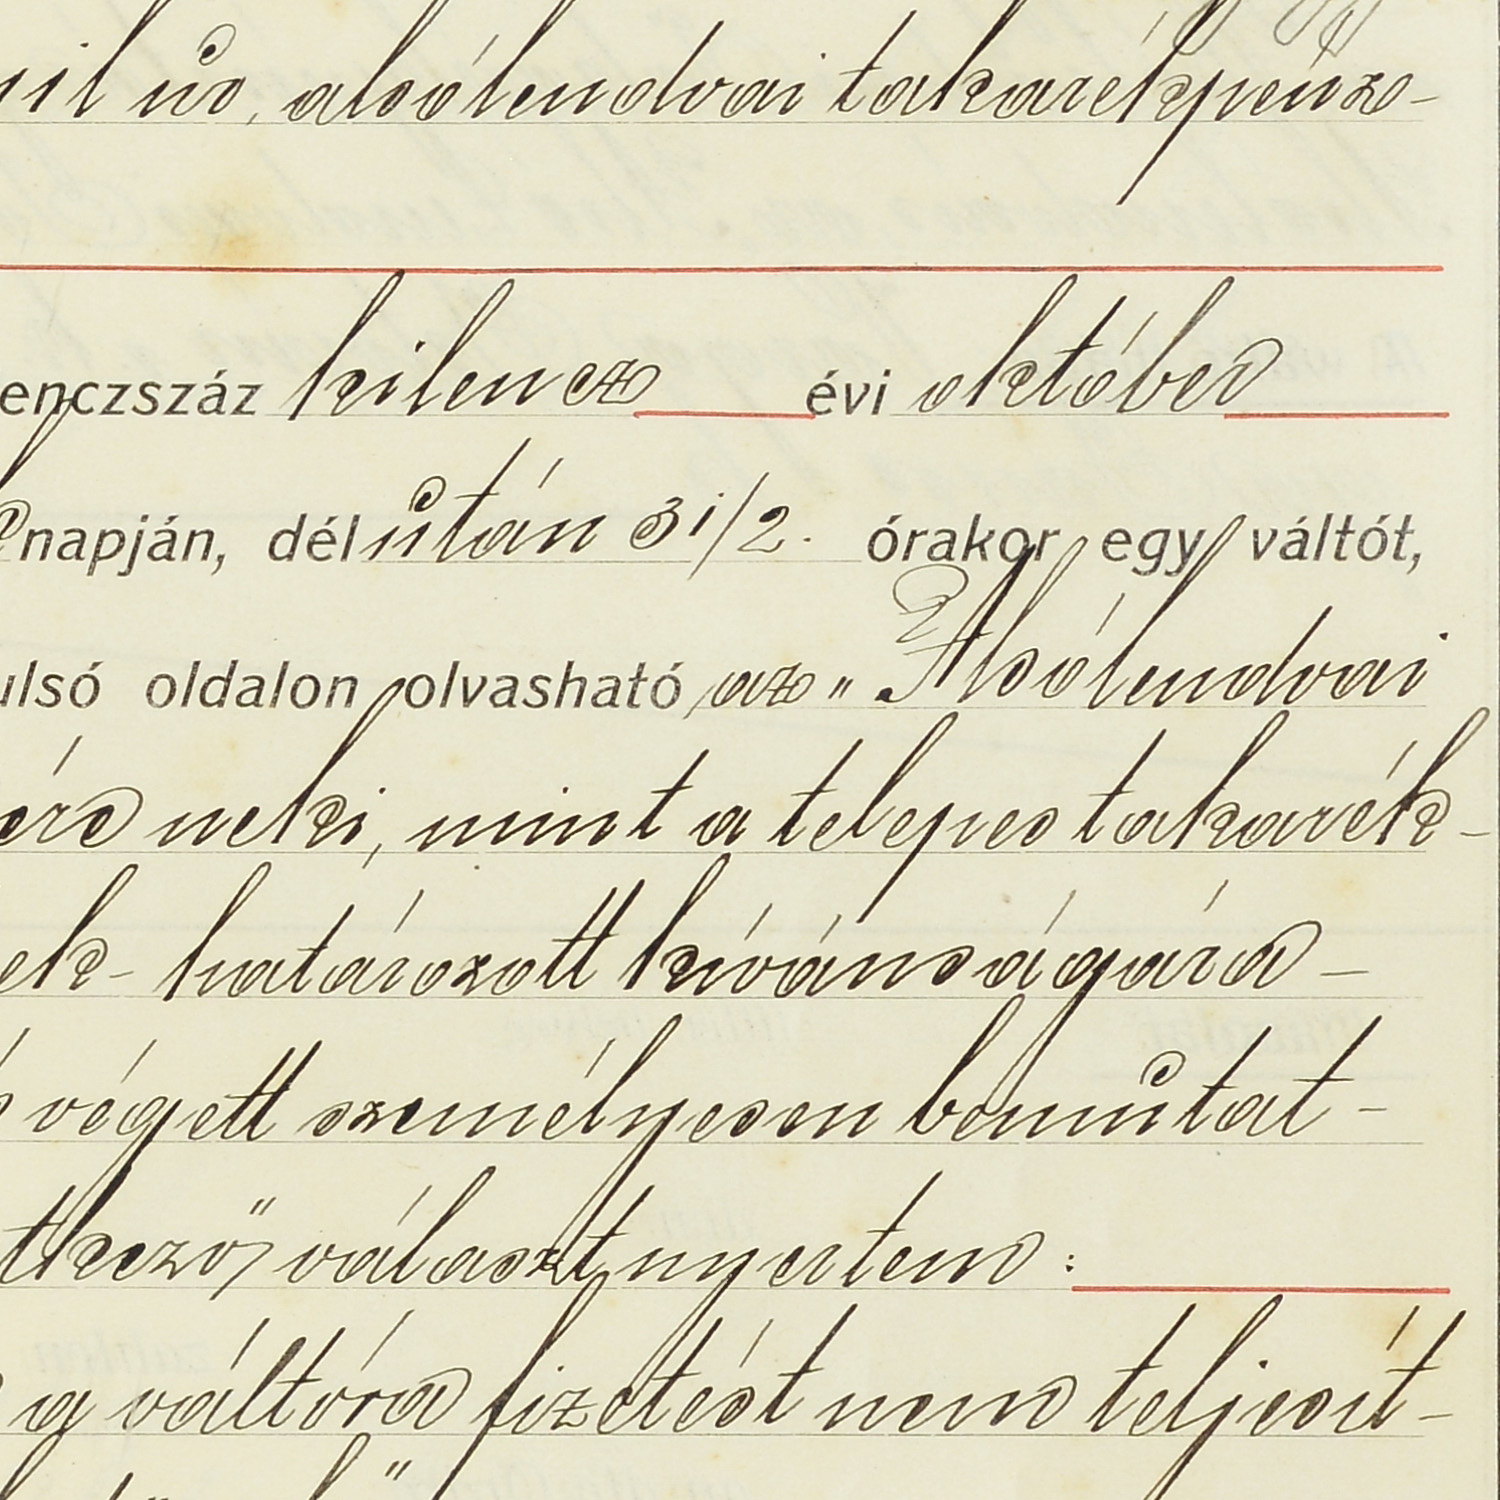 úr, alsólendvai takarékpénz-
enczszáz kilencz évi október
napján, délután 3 1/2. órakor egy váltót,
ulsó oldalon olvasható, az „Alsólendvai
neki, mint a telepes takarék-
ek- határozott kívánságára -
végett személyesen bemutat-
tkező választ nyertem:
váltóra fizetést nem teljesít-